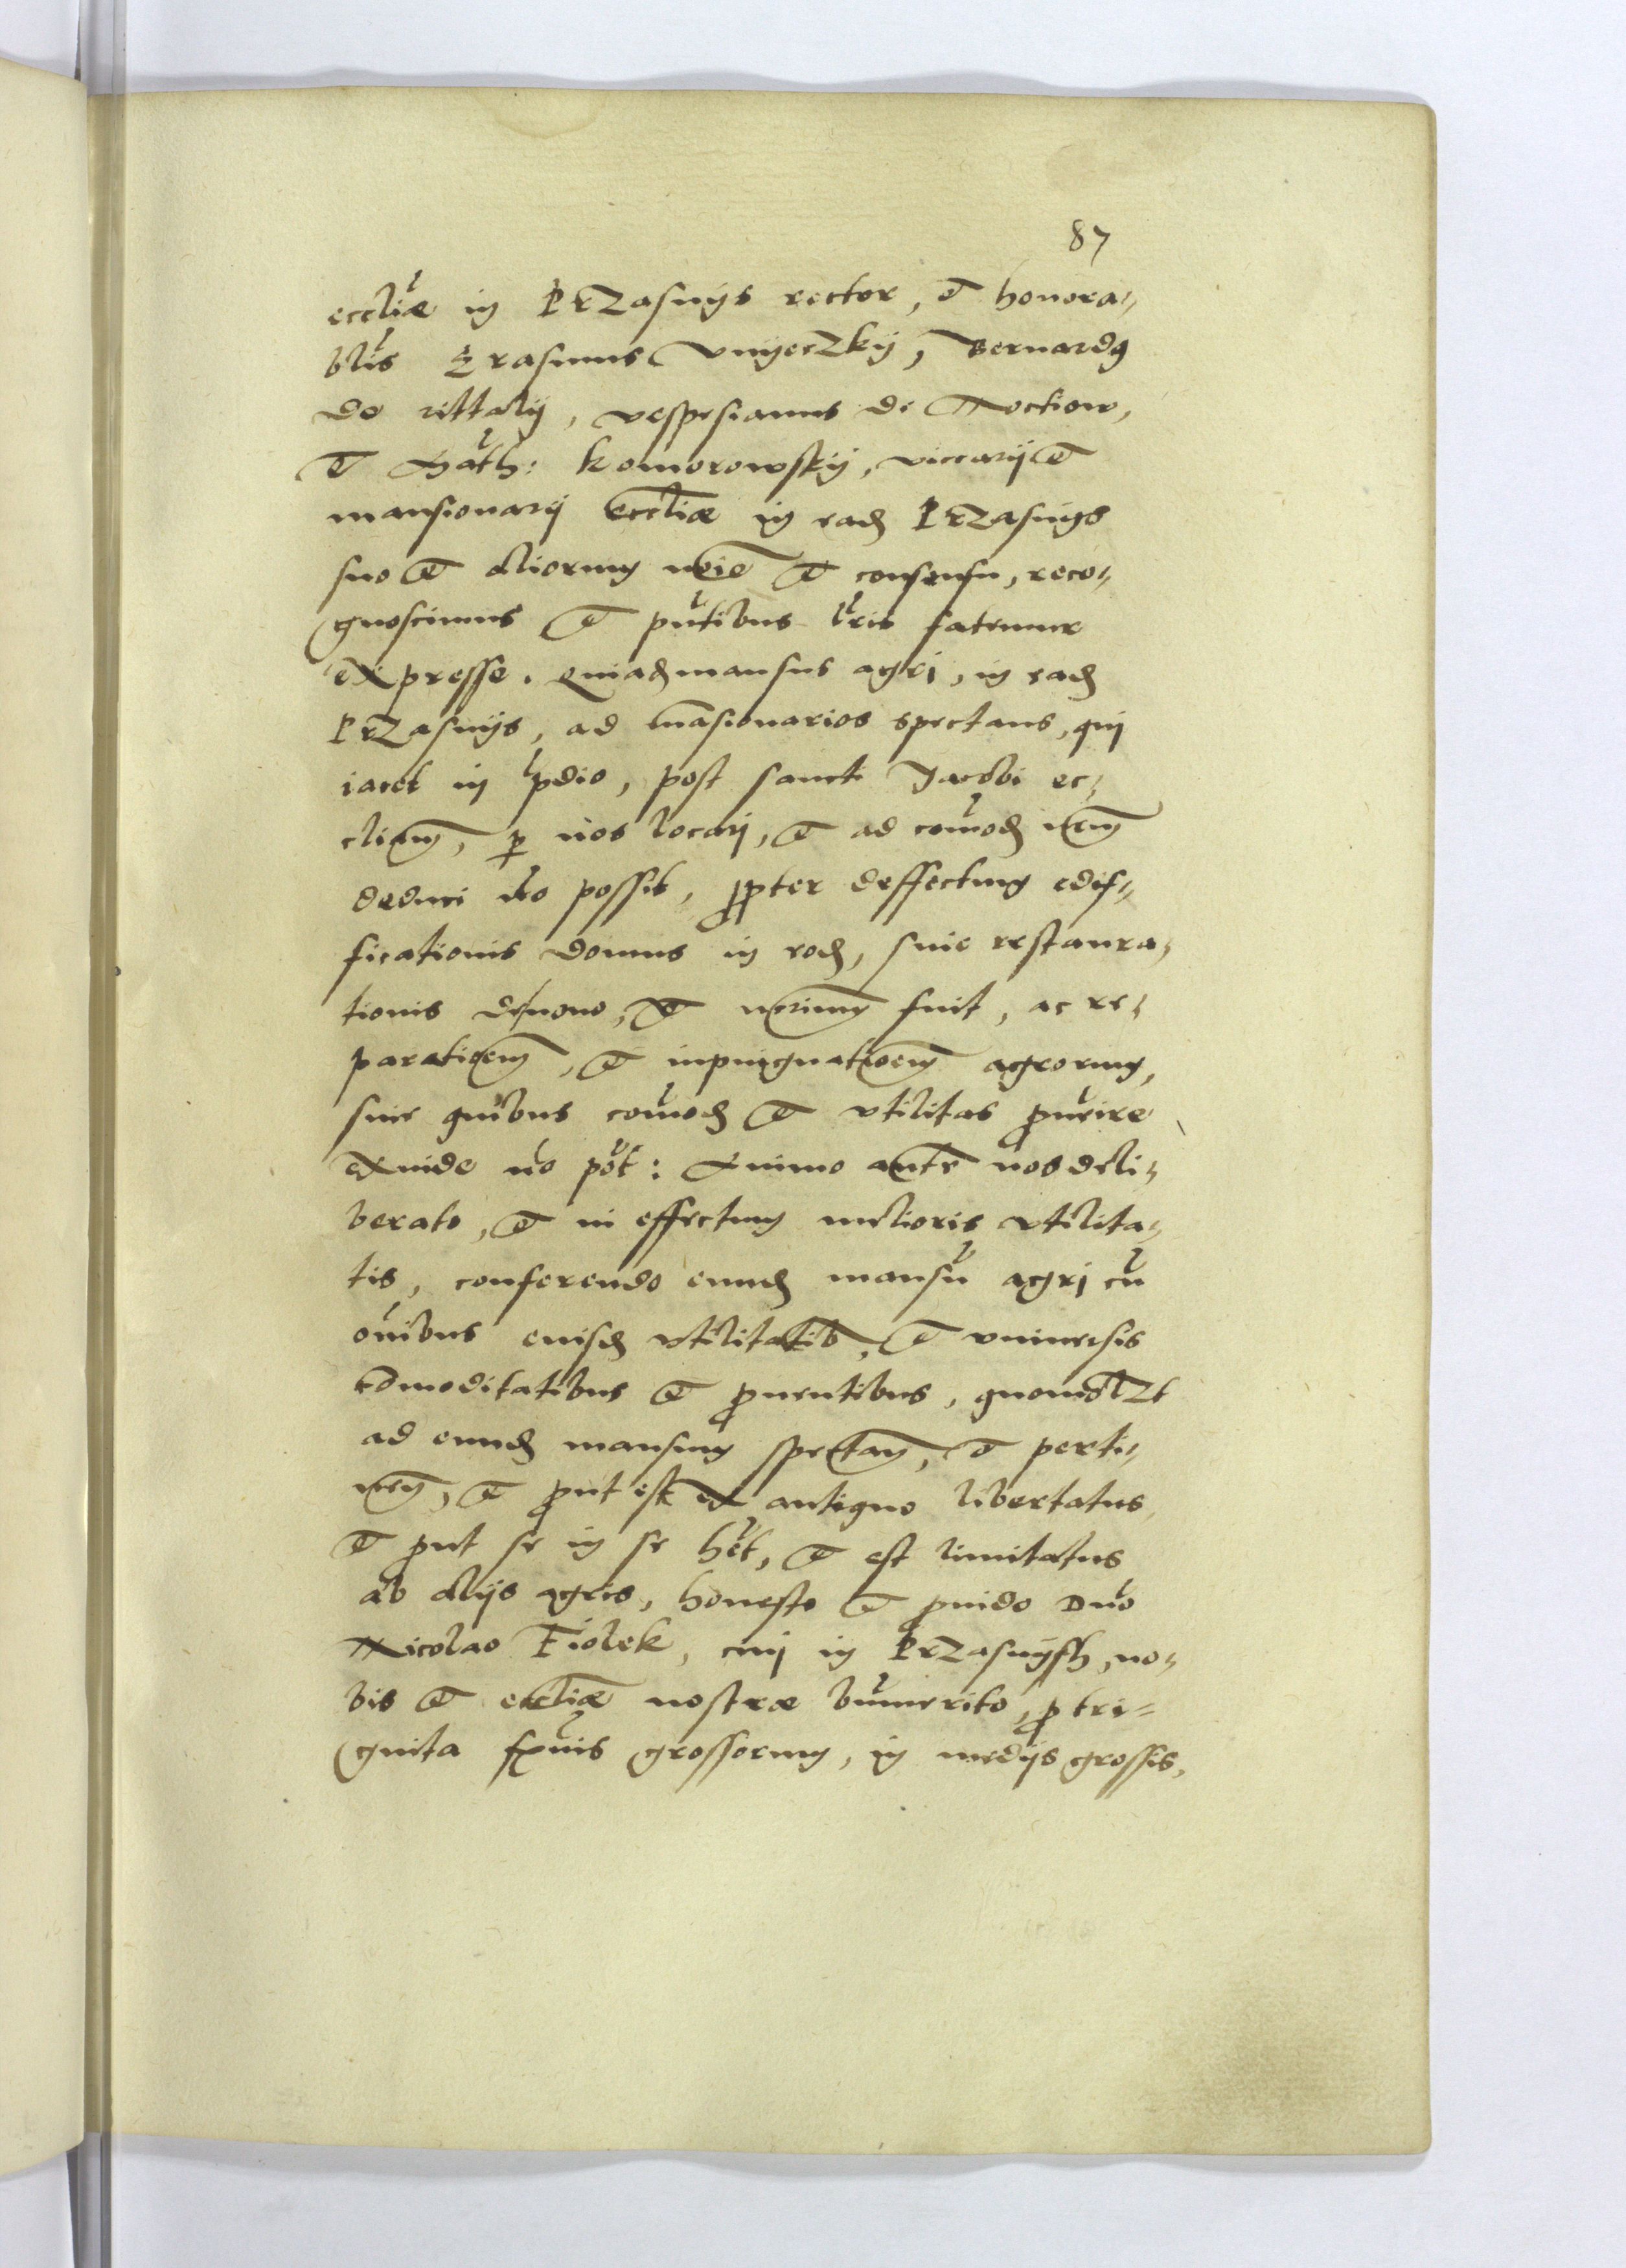 87
eccliæ in Przasnijs rector, et honora-
blis Erasmus Vnijeczkij, Bernardg
de rittalij, vespesianus de Noctiow,
et Math: Komorowskij, viccarij et
mansionarij eccliæ in ead Przasnijs
suo et aliorum noie et consensu, reco-
gnoscimus et pntibus lris fatemur
expresse. Quia d mansus agri, in ead
Przasnijs, ad masionarios spectans, qui
iacet in pdio, post sancti Jacobi ec-
cliam, p nos locari, et ad comod nrm
deduci no possit, ppter deffectum edif-
ficationis domus in eod, siue restaura-
tionis denouo, et fuit, ac re-
paratioem, et inpuignatioem agrorum,
sine quibus comod et vtilitas puenire
exinde no pot: Animo ante nos deli-
berato, et in effectum melioris vtilita-
tis, conferendo eund mansu agri cu
oibus euisd vtilitatib, et vniuersis
comoditatibus et puentibus, quomolzt
ad eund mansum spectan, et perti-
nen, et put est ex antiquo libertatus
et put se in se het, et est limitatus
ab alijs agris, honesto et puido Dno
Nicolao Fiolek, ciui in Przasnijsh, no-
bis et eccliæ nostræ bnmerito, p tri-
gnita sxnis grossorum, in medijs grossis,